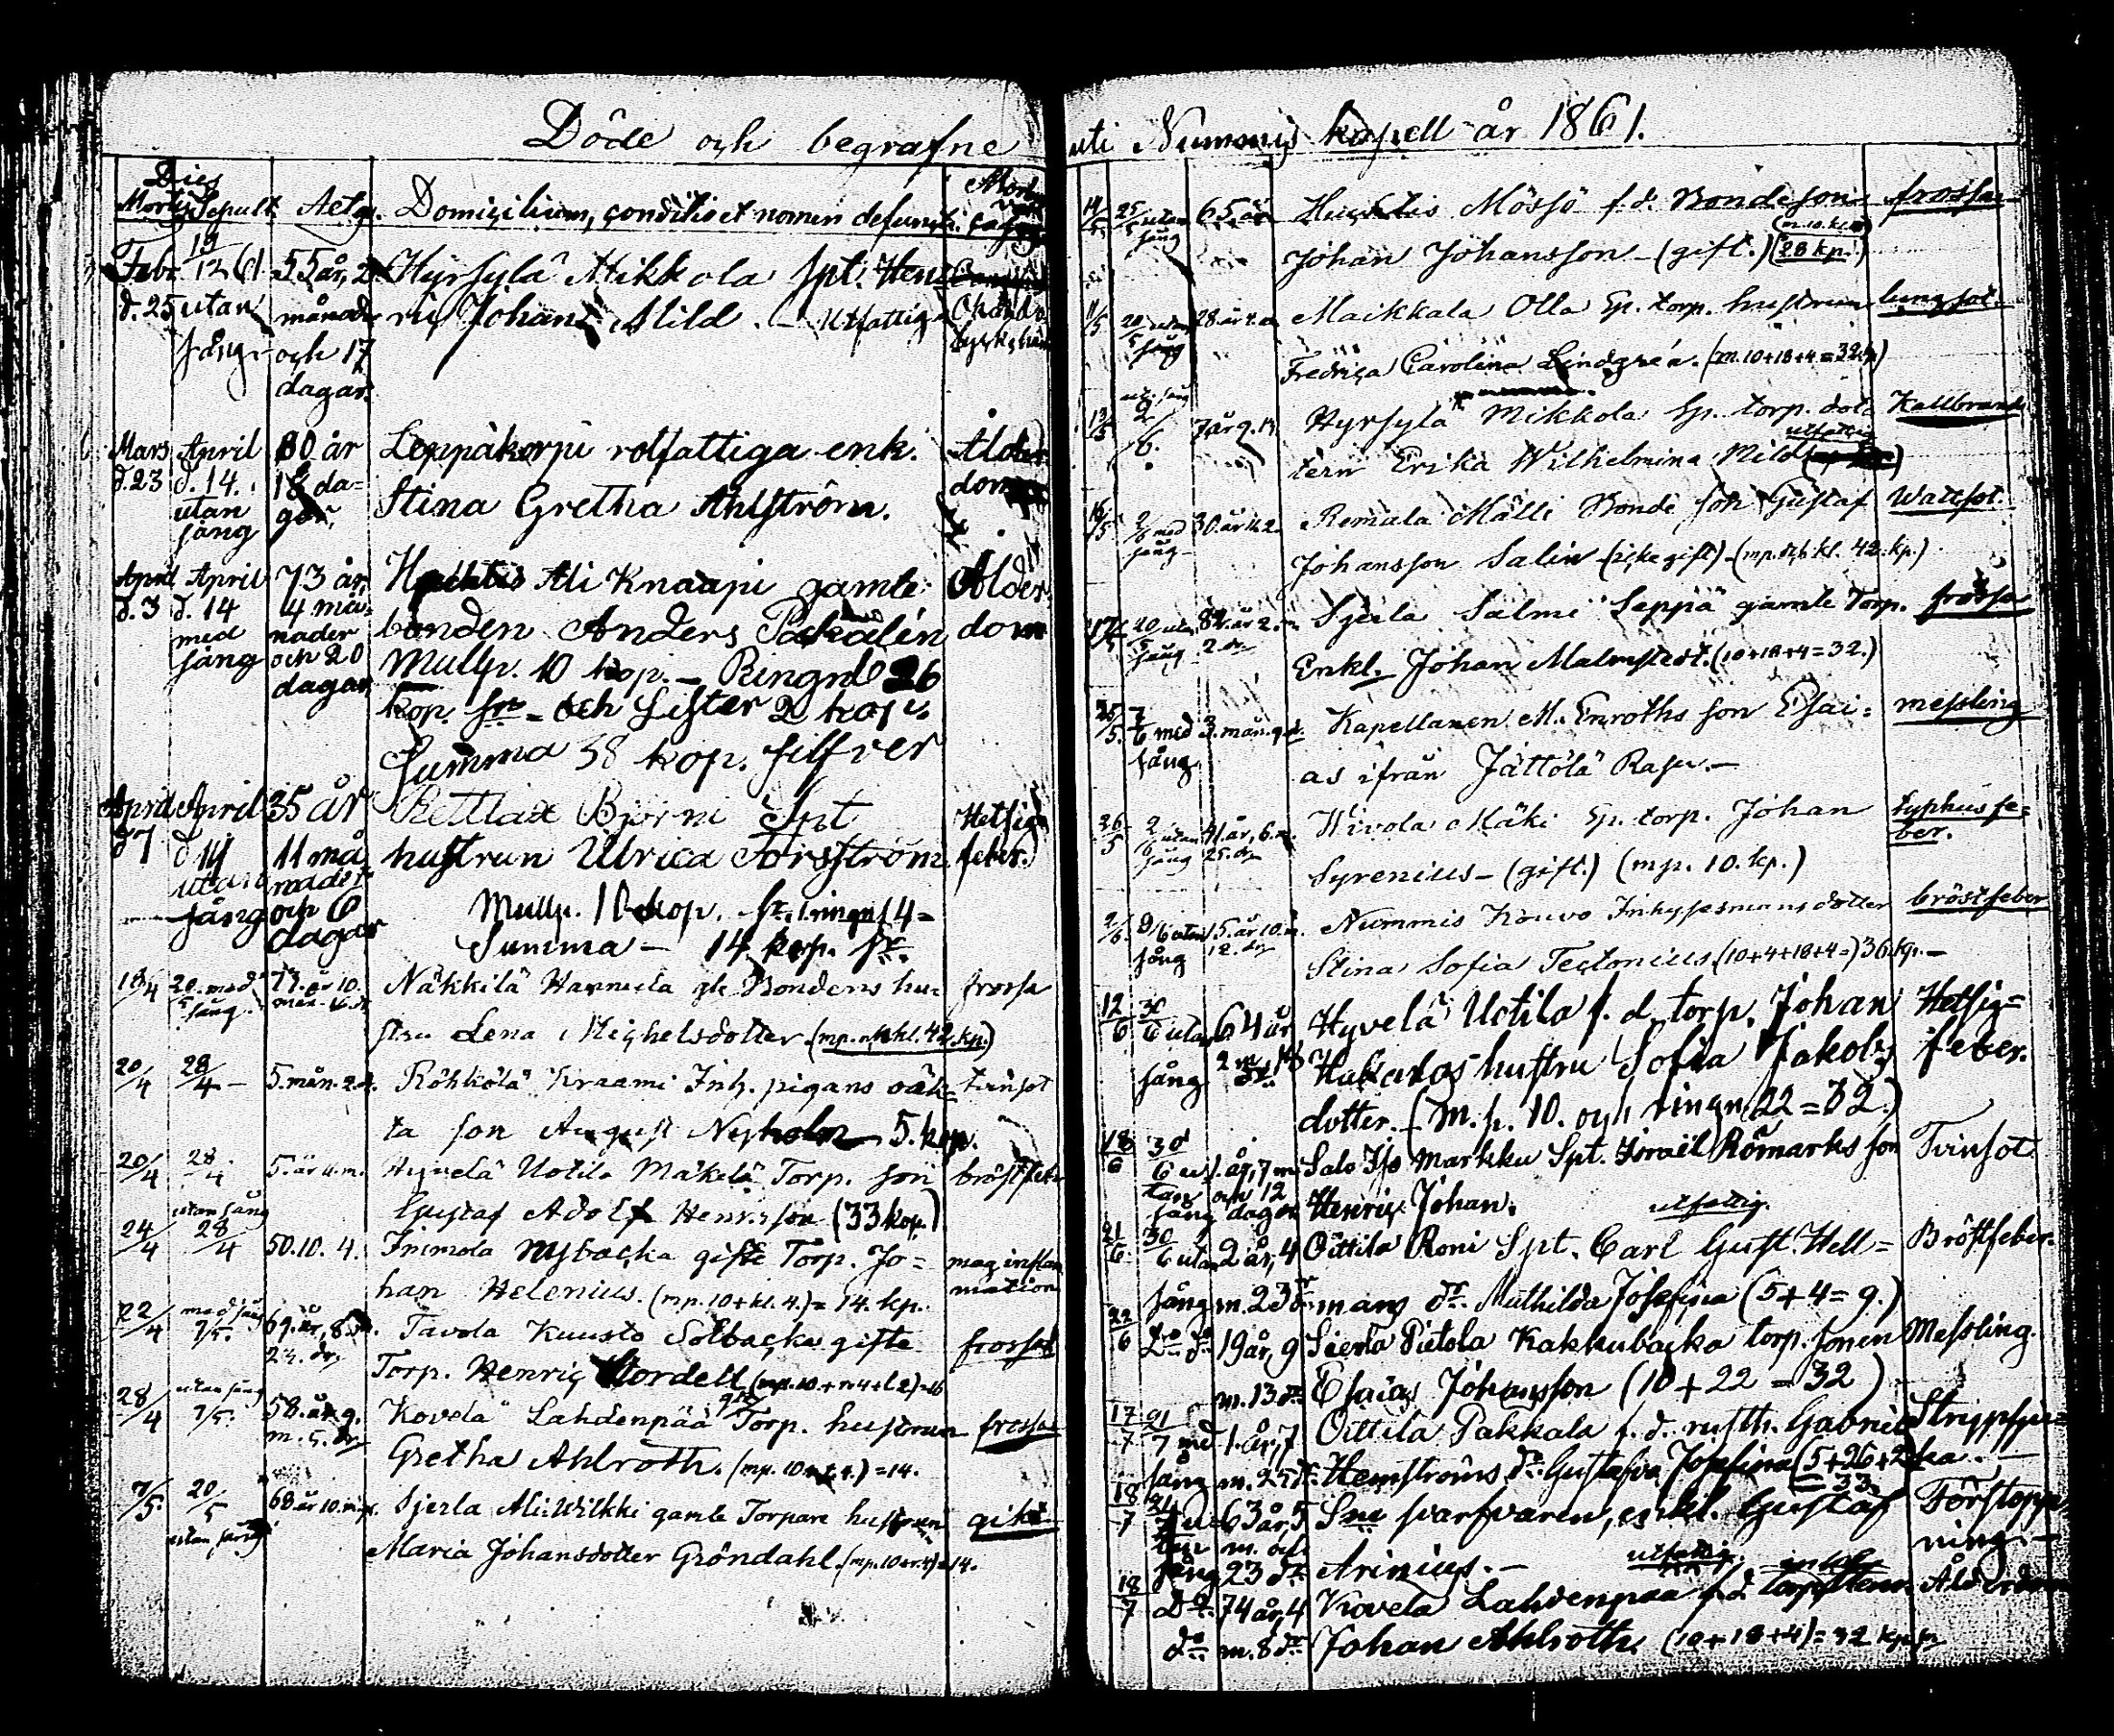 Döde och begrafne
Dies
Mortis Sepult. Aetas. Domicilium, conditio et nomen defuncti.
Febr. 19 55 år, 2 Hyrsylä Mikkola Spt. Hen-
d. 25 utan månad. ric Johans Mild. – Utfattig
sång och 17
dagar.
Mars April 80 år Leppäkorpi rotfattiga enk. Ålder
d. 23 d. 14. 18 da- Stina Gretha Ahlström. dom
utan gar.
sång
April April 73 år, Ali Knaapi gamle Ålder-
d. 3 d. 14 4 må- bonden Anders Pakalén dom
med nader Mullp. 10 kop. – Ringnl 26
sång och 20 kop. sr – och Lister 2 kop.
dagar Summa 38 kop. silfver
April April 35 år Rettlax Björni Spt Hetsig
d 7 d 14 11 må hustrun Ulrica Forsström feber.
utan nader
sång och 6 Mullp. 10 kop. sr. ringn 4 –
dagar Summa – 14 kop. sr.
18/4 20/5 med sång 73. år 10. mån. Näkkilä Hannula gle Bondens hu- frossa
stru Lena Michelsdotter. (mp. kl. 42. kp.)
20/4 28/4 – 5. mån. 2. d. Röhkölä Kraami Inh. pigans oäk- tvinsot
ta son August Nyholm 5. kop.
20/4 28/4 5. år 4. m. Hyvelä Uotila Mäkelä Torp. son bröstfeber
utan sång Gustaf Adolf Henrsson (33 kop.)
24/4 28/4 50. 10. 4. Immola Nybacka gifte Torp. Jo- mag inflam
han Helenius. (mp. 10 + kl. 4.) = 14. kp. mation
22/4 med sång 7/5. 69. år, 8. Tavola Kuusto Solbacka gifte frossa
Torp. Henric Nordell (mp. 10 + r. 4 + l 2) = 16
28/4 utan sång 7/5. 58. år 9. Kovela Lahdenpää Torp. hustrun frossa
m. 5. dr Gretha Ahlroth. (mp. 10 + r. 4.) = 14.
7/5 20/5 68 år 10. Sjerla Ali-Wilkki gamle Torpare hustrun gikt
utan sång Maria Johansdotter Gröndahl. (mp. 10 + r. 4) = 14.
uti Nummis kapell år 1861.
14/5 25/5 utan sång 65. år Huhtis Mössö f. d. Bondeson frossa
Johan Johansson – (gift.) (28 kp.)
11/5 20/5 utan sång 28 år Maikkala Olla Sp. torp. hustrun lungsot
Fredrica Carolina Lindgrén. (m. 10 + 18 + 4 = 32 kp)
13/5 2/6 7 år 9. Hyrsylä Mikkola Sp. torp. dot- Kallbrand
utfattig
tern Erika Wilhelmina Mild
16/5 2/6 med sång 30. år Remala Mälli Bonde son Gustaf Wattsot
Johansson Salin (icke gift) – (mp. kl. 42. kp.)
17/5 20/5 utan sång 82. år 2. m Sjerla Salmi Seppä gamle Torp. frossa
2. dr Enkl. Johan Malmstedt. (10 + 18 + 4 = 32.)
25/5. 7/6 med sång 3. mån. 9. d. Kapellanen M. Enroths son Esai- messling
as ifrån Jättölä Rasu. –
26/5 2/6 utan sång 41. år, 6. m. Wivola Mäki Sp. torp. Johan typhus fe-
25. dr Syrenius – (gift.) (mp. 10. kp.) ber.
2/6. 9/6 utan sång 15. år 10. m. Nummis Kouvo Inhysesmans dotter bröstfeber
12. dr Stina Sofia Tectonius. (10 + 4 + 18 + 4 =) 36 kp. –
12/6 30/6 utan 64 år Hyvelä Uotila f. d. torp. Johan Hetsig-
sång 2 m. hustru Sofia Jakobs feber.
dotter. – (m. p. 10. och ringn. 22 = 32.)
18/6 30/6 u- 1. år, 7 m. Salo Iso Markku Spt. Israël Römarks son Tvinsot
tan sång och 12 dagar Henric Johan. utfattig.
21/6 30/6 utan 2 år, 4 Oittila Roni Spt. Carl Gust. Hell- Bröstfeber.
sång m. 23 dr mans dr. Mathilda Josefina (5 + 4 = 9.)
22/6 Do do 19 år, 9 Sierla Pietola Kakkubacka torp. sonen Messling.
m. 13 dr Esaias Johansson (10 + 22 = 32)
17/7 21/7 med 1. år, 7 Oittila Pakkala f. d. rusth. Gabriel Strypsju-
sång m. 25 dr Hemströms dr. Gustafva Josefina (5 + 26 + 2 ka. –
= 33.
18/7 21/7 u- 63 år, 5 Sne svarfvaren, enkl. Gustaf Förstopp
tan m. och
sång 23 dr Arinius. – utfattig. ning. –
18/7 Do 74 år, 4 Kovela Lahdenpää f. d. torp Ålderdom
do m. 8 dr Johan Ahlroth. (10 + 18 + 4) = 32 kp sr